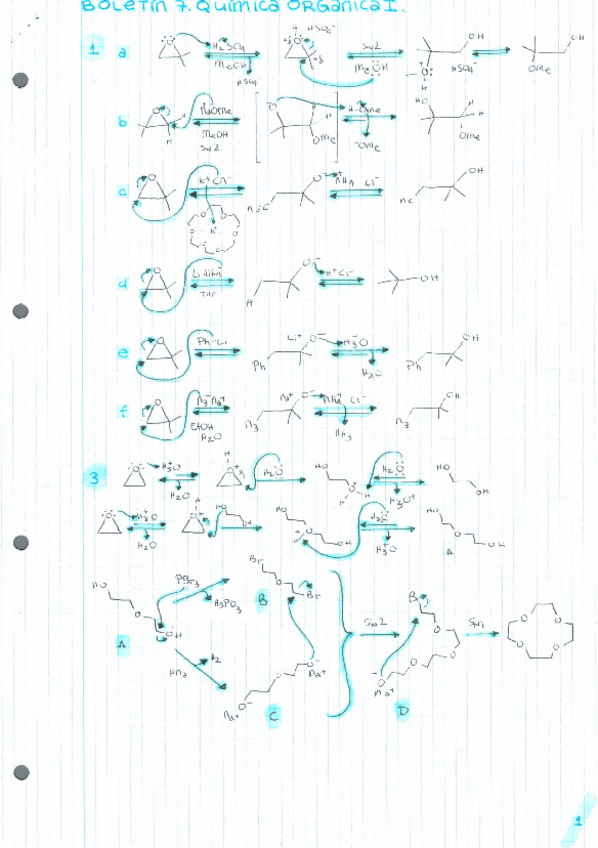 BOLETÍN 7. QUÍMICA ORGÁNICA I.
1 a H2SO4 MeOH HSO4- HSO4- SN2 MeOH OH HSO4- OH OMe
b NaOMe MeOH SN2 H OMe H-OMe -OMe HO H OMe
c K+ CN- K+ O- NH4 Cl- OH
d LiAlH4 THF H O- H+Cl- OH
e Ph-Li Ph Li+ O- H3O H2O Ph OH
f N3- Na+ EtOH H2O N3 Na+ O- NH4+ Cl- NH3 N3 OH
3 H3O H2O H2O HO H2O H3O+ HO OH
H3O H2O HO HO OH H2O H3O HO OH A
HO OH A PBr3 H3PO3 Br Br B SN2 Br O O O O- Na+ D SN2 O O O O
H2 O- Na+ Na+ O- C
1